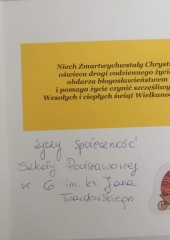 Niech Zmartwychwstały Chryst
oświeca drogi codziennego życi
obdarza błogosławieństwem
i pomaga życie czynić szczęśliwy
Wesołych i ciepłych świąt Wielkano
życzy Społeczność
Szkoły Podstawowej
nr 6 im. ks. Jana
Twardowskiego